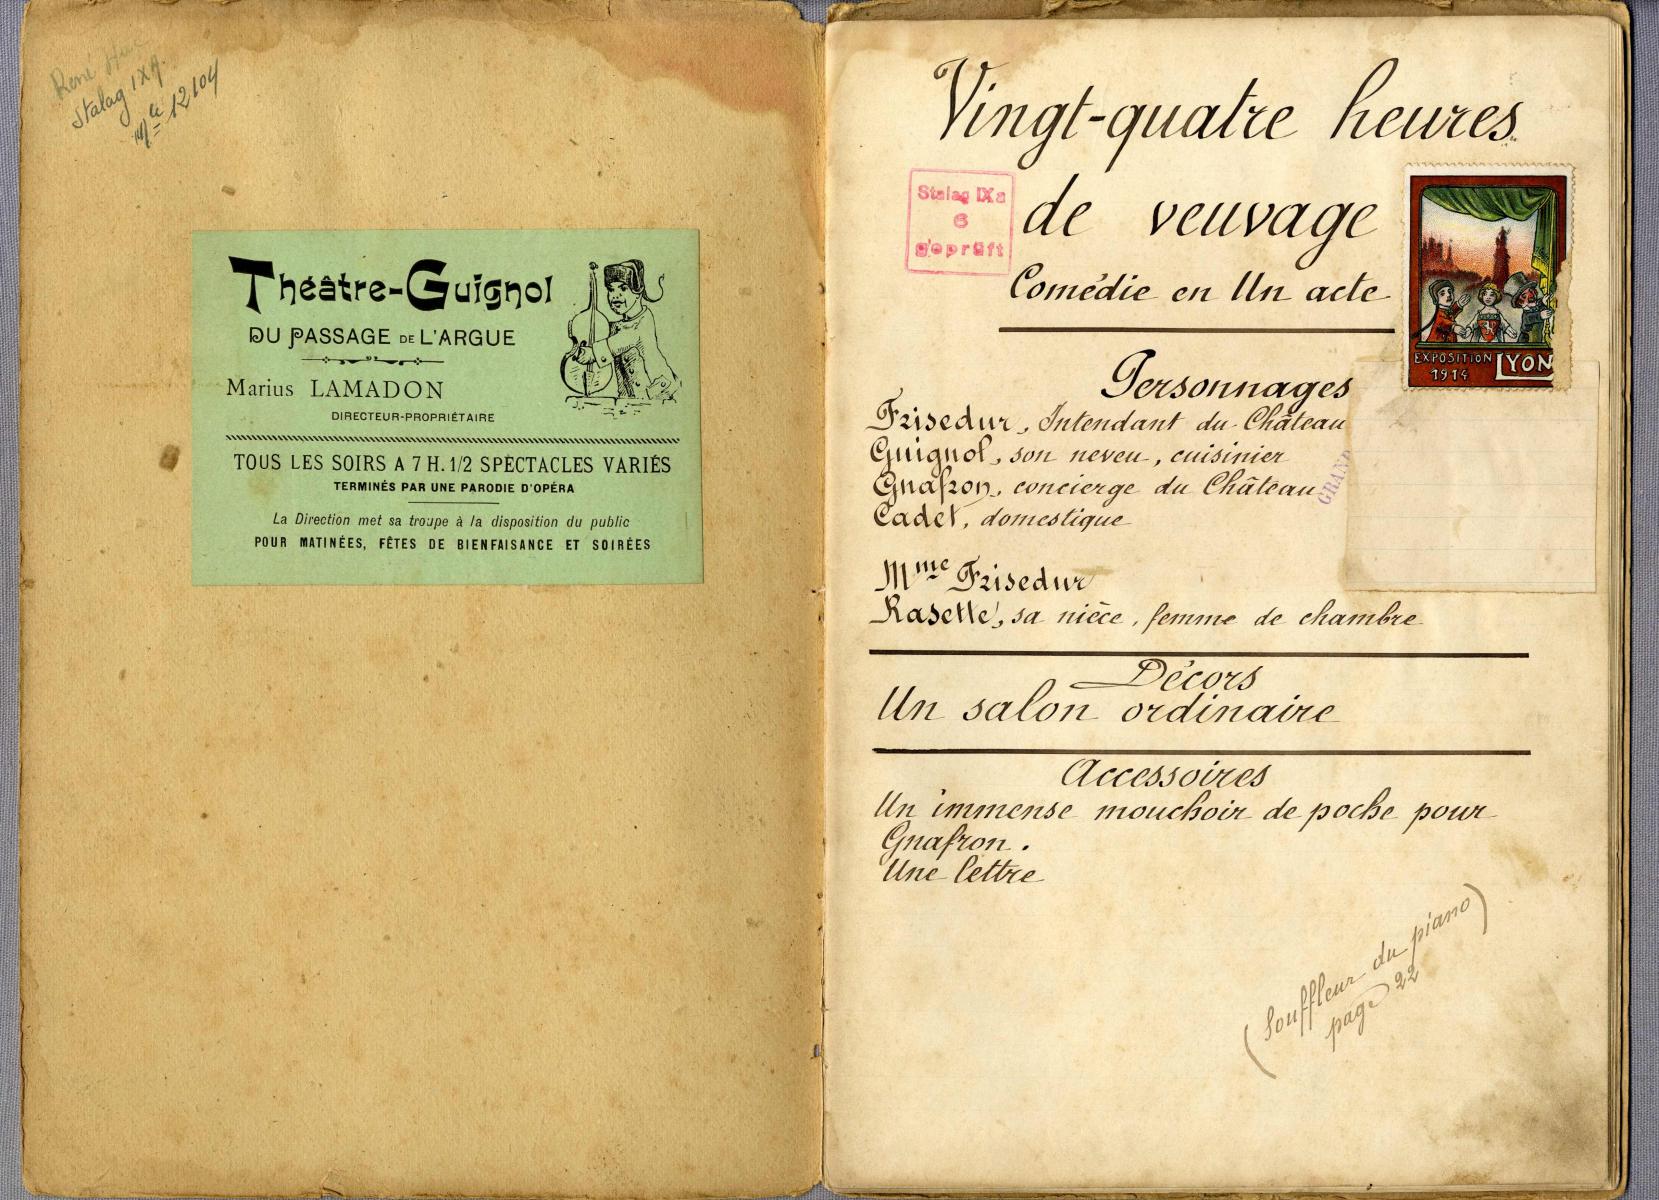 Stalag IXA
12104
Théâtre-Guignol
DU PASSAGE DE L'ARGUE
Marius LAMADON
DIRECTEUR-PROPRIÉTAIRE
TOUS LES SOIRS A 7 H. 1/2 SPECTACLES VARIÉS
TERMINÉS PAR UNE PARODIE D'OPÉRA
La Direction met sa troupe à la disposition du public
POUR MATINÉES, FÊTES DE BIENFAISANCE ET SOIRÉES
Vingt-quatre heures
de veuvage
Stalag IXa
6
geprüft
Comédie en Un acte
EXPOSITION LYON
1914
Personnages
Frisedur, Intendant du Château
Guignol, son neveu, cuisinier
Gnafron, concierge du Château
GRAND
Cadet, domestique
Mme Frisedur
Rasette, sa nièce, femme de chambre
Décors
Un salon ordinaire
Accessoires
Un immense mouchoir de poche pour
Gnafron.
Une lettre
(Souffleur du piano)
page 22